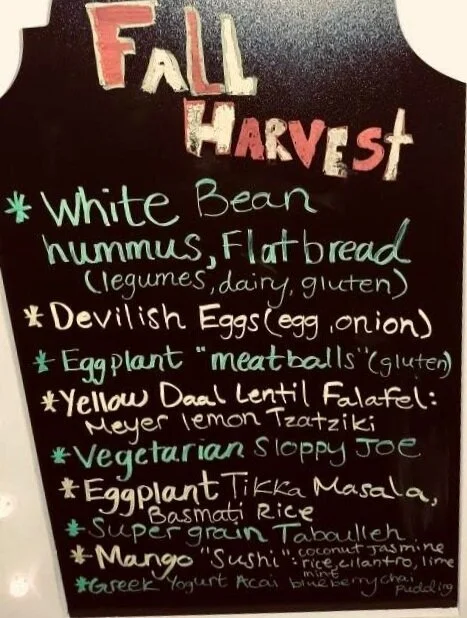 FALL
HARVEST
* White Bean
hummus, Flatbread
(legumes, dairy, gluten)
* Devilish Eggs (egg, onion)
* Eggplant "meatballs" (gluten)
* Yellow Daal Lentil Falafel:
Meyer lemon Tzatziki
* Vegetarian Sloppy Joe
* Eggplant Tikka Masala,
Basmati Rice
* Super grain Taboulleh
* Mango "Sushi": coconut jasmine
rice, cilantro, lime
mint
* Greek Yogurt Acai blueberry chai
pudding